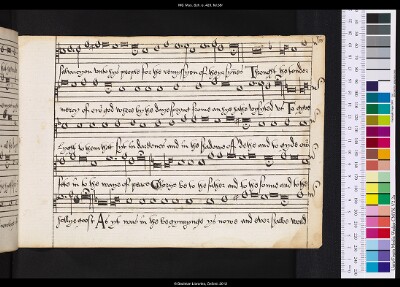 salvacyon unto hys people for the remyssion of theyr synnes Through the tender
mercy of our god wherby the day sprynge from on hye hathe vysyted us To gyve
lyght to them that sytt in darknes and in the shadowe of dethe and to guyde our
fete in to the waye of peace Glorye be to the father and to the sonne and to the
holly goost As yt was in the begynnynge ys nowe and ever shalbe world
© Bodleian Libraries, Oxford, 2012